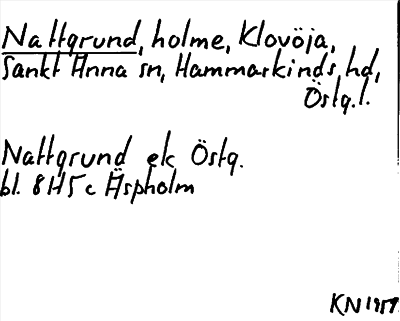 Nattgrund, holme, Klovöja,
Sankt Anna sn, Hammarkinds hd,
Östg.l.
Nattgrund ek Östg.
bl. 8H5c Äspholm
KN 1957